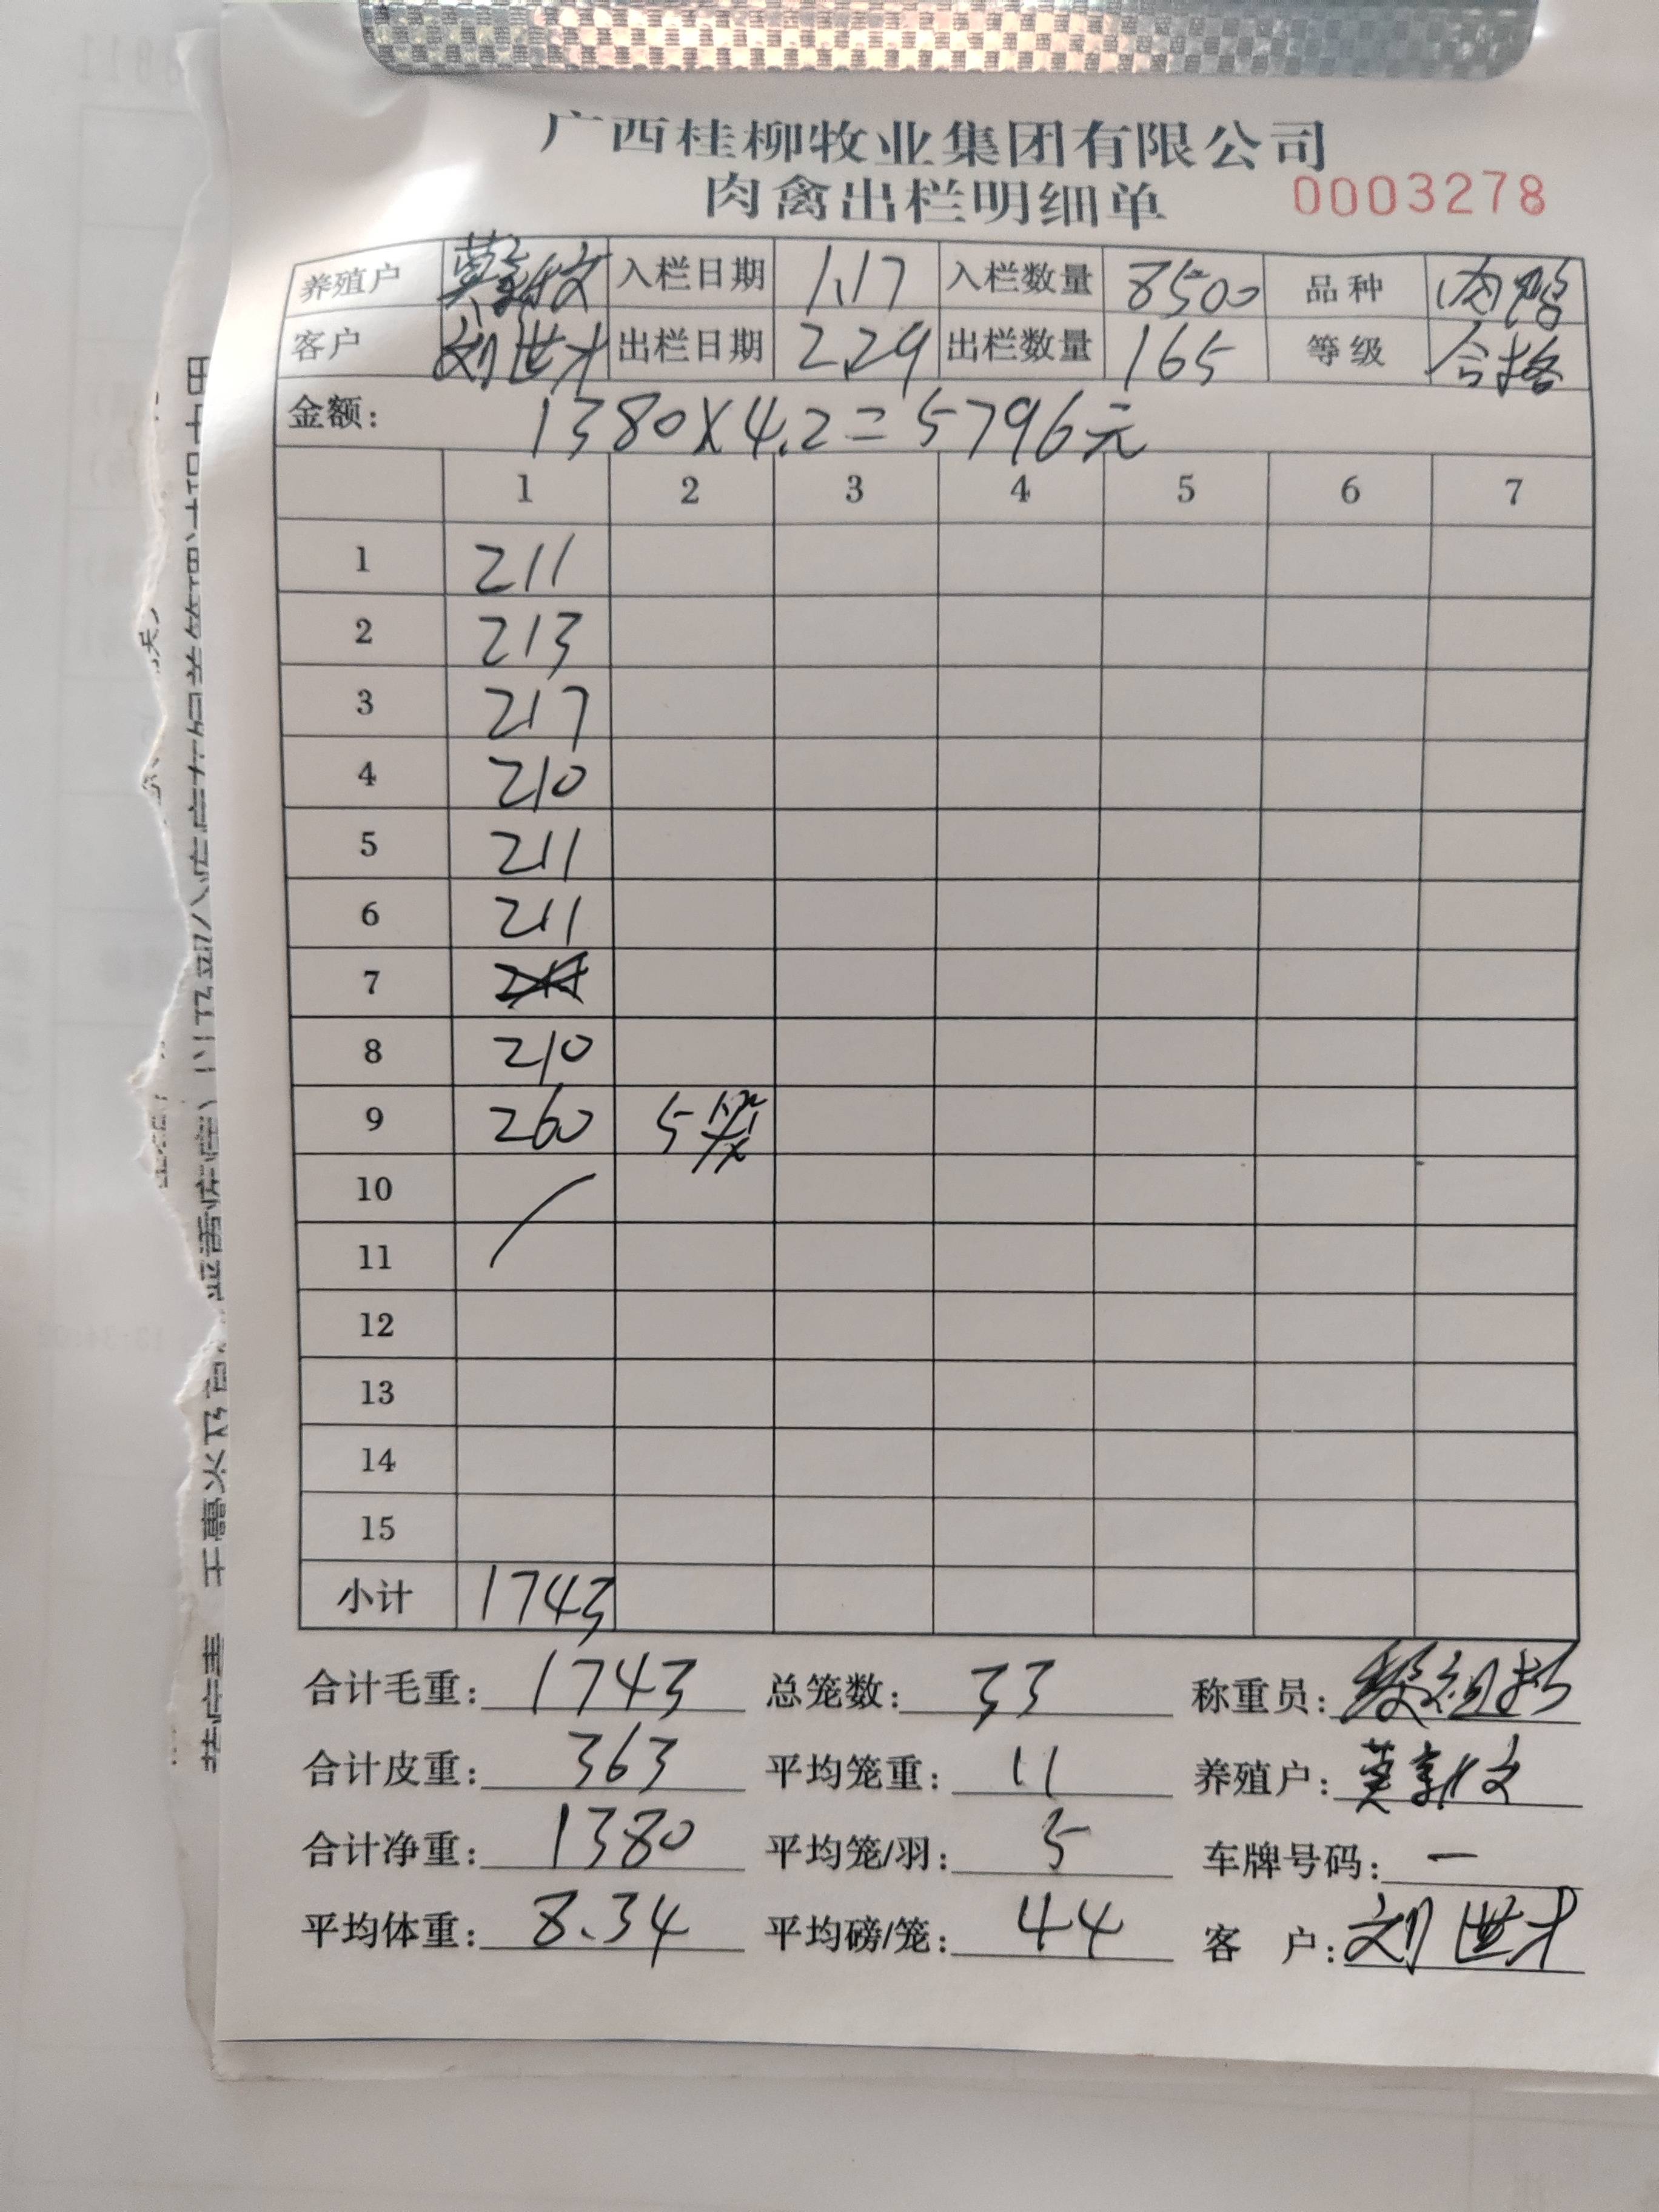 广西桂柳牧业集团有限公司
肉禽出栏明细单 0003278
养殖户 莫新文 入栏日期 1.17 入栏数量 8500 品种 肉鸭
客户 刘世才 出栏日期 2.29 出栏数量 165 等级 合格
金额: 1380X4.2=5796元
1 2 3 4 5 6 7
1 211
2 213
3 217
4 210
5 211
6 211
7
8 210
9 260 5
10
11
12
13
14
15
小计 1743
合计毛重: 1743 总笼数: 33 称重员:
合计皮重: 363 平均笼重: 11 养殖户: 莫新文
合计净重: 1380 平均笼/羽: 5 车牌号码: 一
平均体重: 8.34 平均磅/笼: 44 客 户: 刘世才